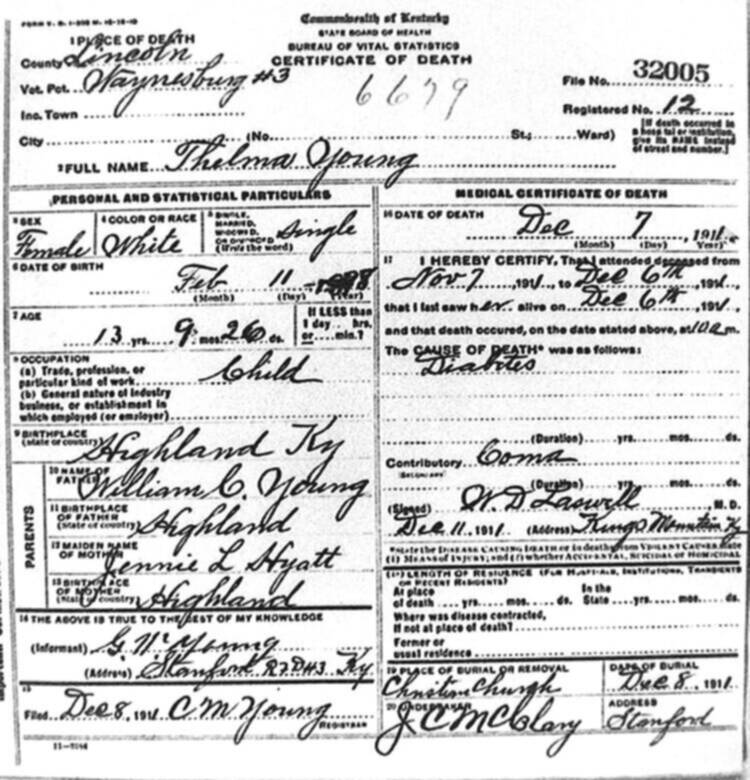 FORM V. S. 1-
Commonwealth of Kentucky
STATE BOARD OF HEALTH
BUREAU OF VITAL STATISTICS
CERTIFICATE OF DEATH
1 PLACE OF DEATH
County Lincoln
Vot. Pct. Waynesburg #3
Inc. Town
City (No. St.; Ward)
6679
File No. 32005
Registered No. 12
[If death occurred in a hospital or institution, give its NAME instead of street and number.]
2 FULL NAME Thelma Young
PERSONAL AND STATISTICAL PARTICULARS
3 SEX Female
4 COLOR OR RACE White
5 SINGLE, MARRIED, WIDOWED, OR DIVORCED (Write the word) Single
6 DATE OF BIRTH Feb 11
(Month) (Day) (Year)
7 AGE 13 yrs. 9 mos. 26 ds.
If LESS than 1 day hrs. or min.?
8 OCCUPATION
(a) Trade, profession, or particular kind of work Child
(b) General nature of industry business, or establishment in which employed (or employer)
9 BIRTHPLACE (State or country) Highland Ky
PARENTS
10 NAME OF FATHER William C. Young
11 BIRTHPLACE OF FATHER (State or country) Highland
12 MAIDEN NAME OF MOTHER Jennie L Hyatt
13 BIRTHPLACE OF MOTHER (State or country) Highland
14 THE ABOVE IS TRUE TO THE BEST OF MY KNOWLEDGE
(Informant) G. W. Young
(Address) Stanford RFD #3 Ky
15
Filed Dec 8, 1911 C M Young
REGISTRAR
MEDICAL CERTIFICATE OF DEATH
16 DATE OF DEATH Dec 7, 1911
(Month) (Day) (Year)
17 I HEREBY CERTIFY, That I attended deceased from
Nov 7, 1911, to Dec 6th, 1911,
that I last saw her alive on Dec 6th, 1911,
and that death occured, on the date stated above, at 10 a m.
The CAUSE OF DEATH* was as follows:
Diabetes
(Duration) yrs. mos. ds.
Contributory Coma
SECONDARY
(Duration) yrs. mos. ds.
(Signed) W. D Laswell M. D.
Dec 11, 1911 (Address) Kings Mountain Ky
*State the DISEASE CAUSING DEATH, or in deaths from VIOLENT CAUSES, state (1) MEANS OF INJURY; and (2) whether ACCIDENTAL, SUICIDAL or HOMICIDAL
18 LENGTH OF RESIDENCE (FOR HOSPITALS, INSTITUTIONS, TRANSIENTS OR RECENT RESIDENTS)
At place of death yrs. mos. ds. In the State yrs. mos. ds.
Where was disease contracted, If not at place of death?
Former or usual residence
19 PLACE OF BURIAL OR REMOVAL Christian Church
DATE OF BURIAL Dec 8, 1911
20 UNDERTAKER J C McClary
ADDRESS Stanford